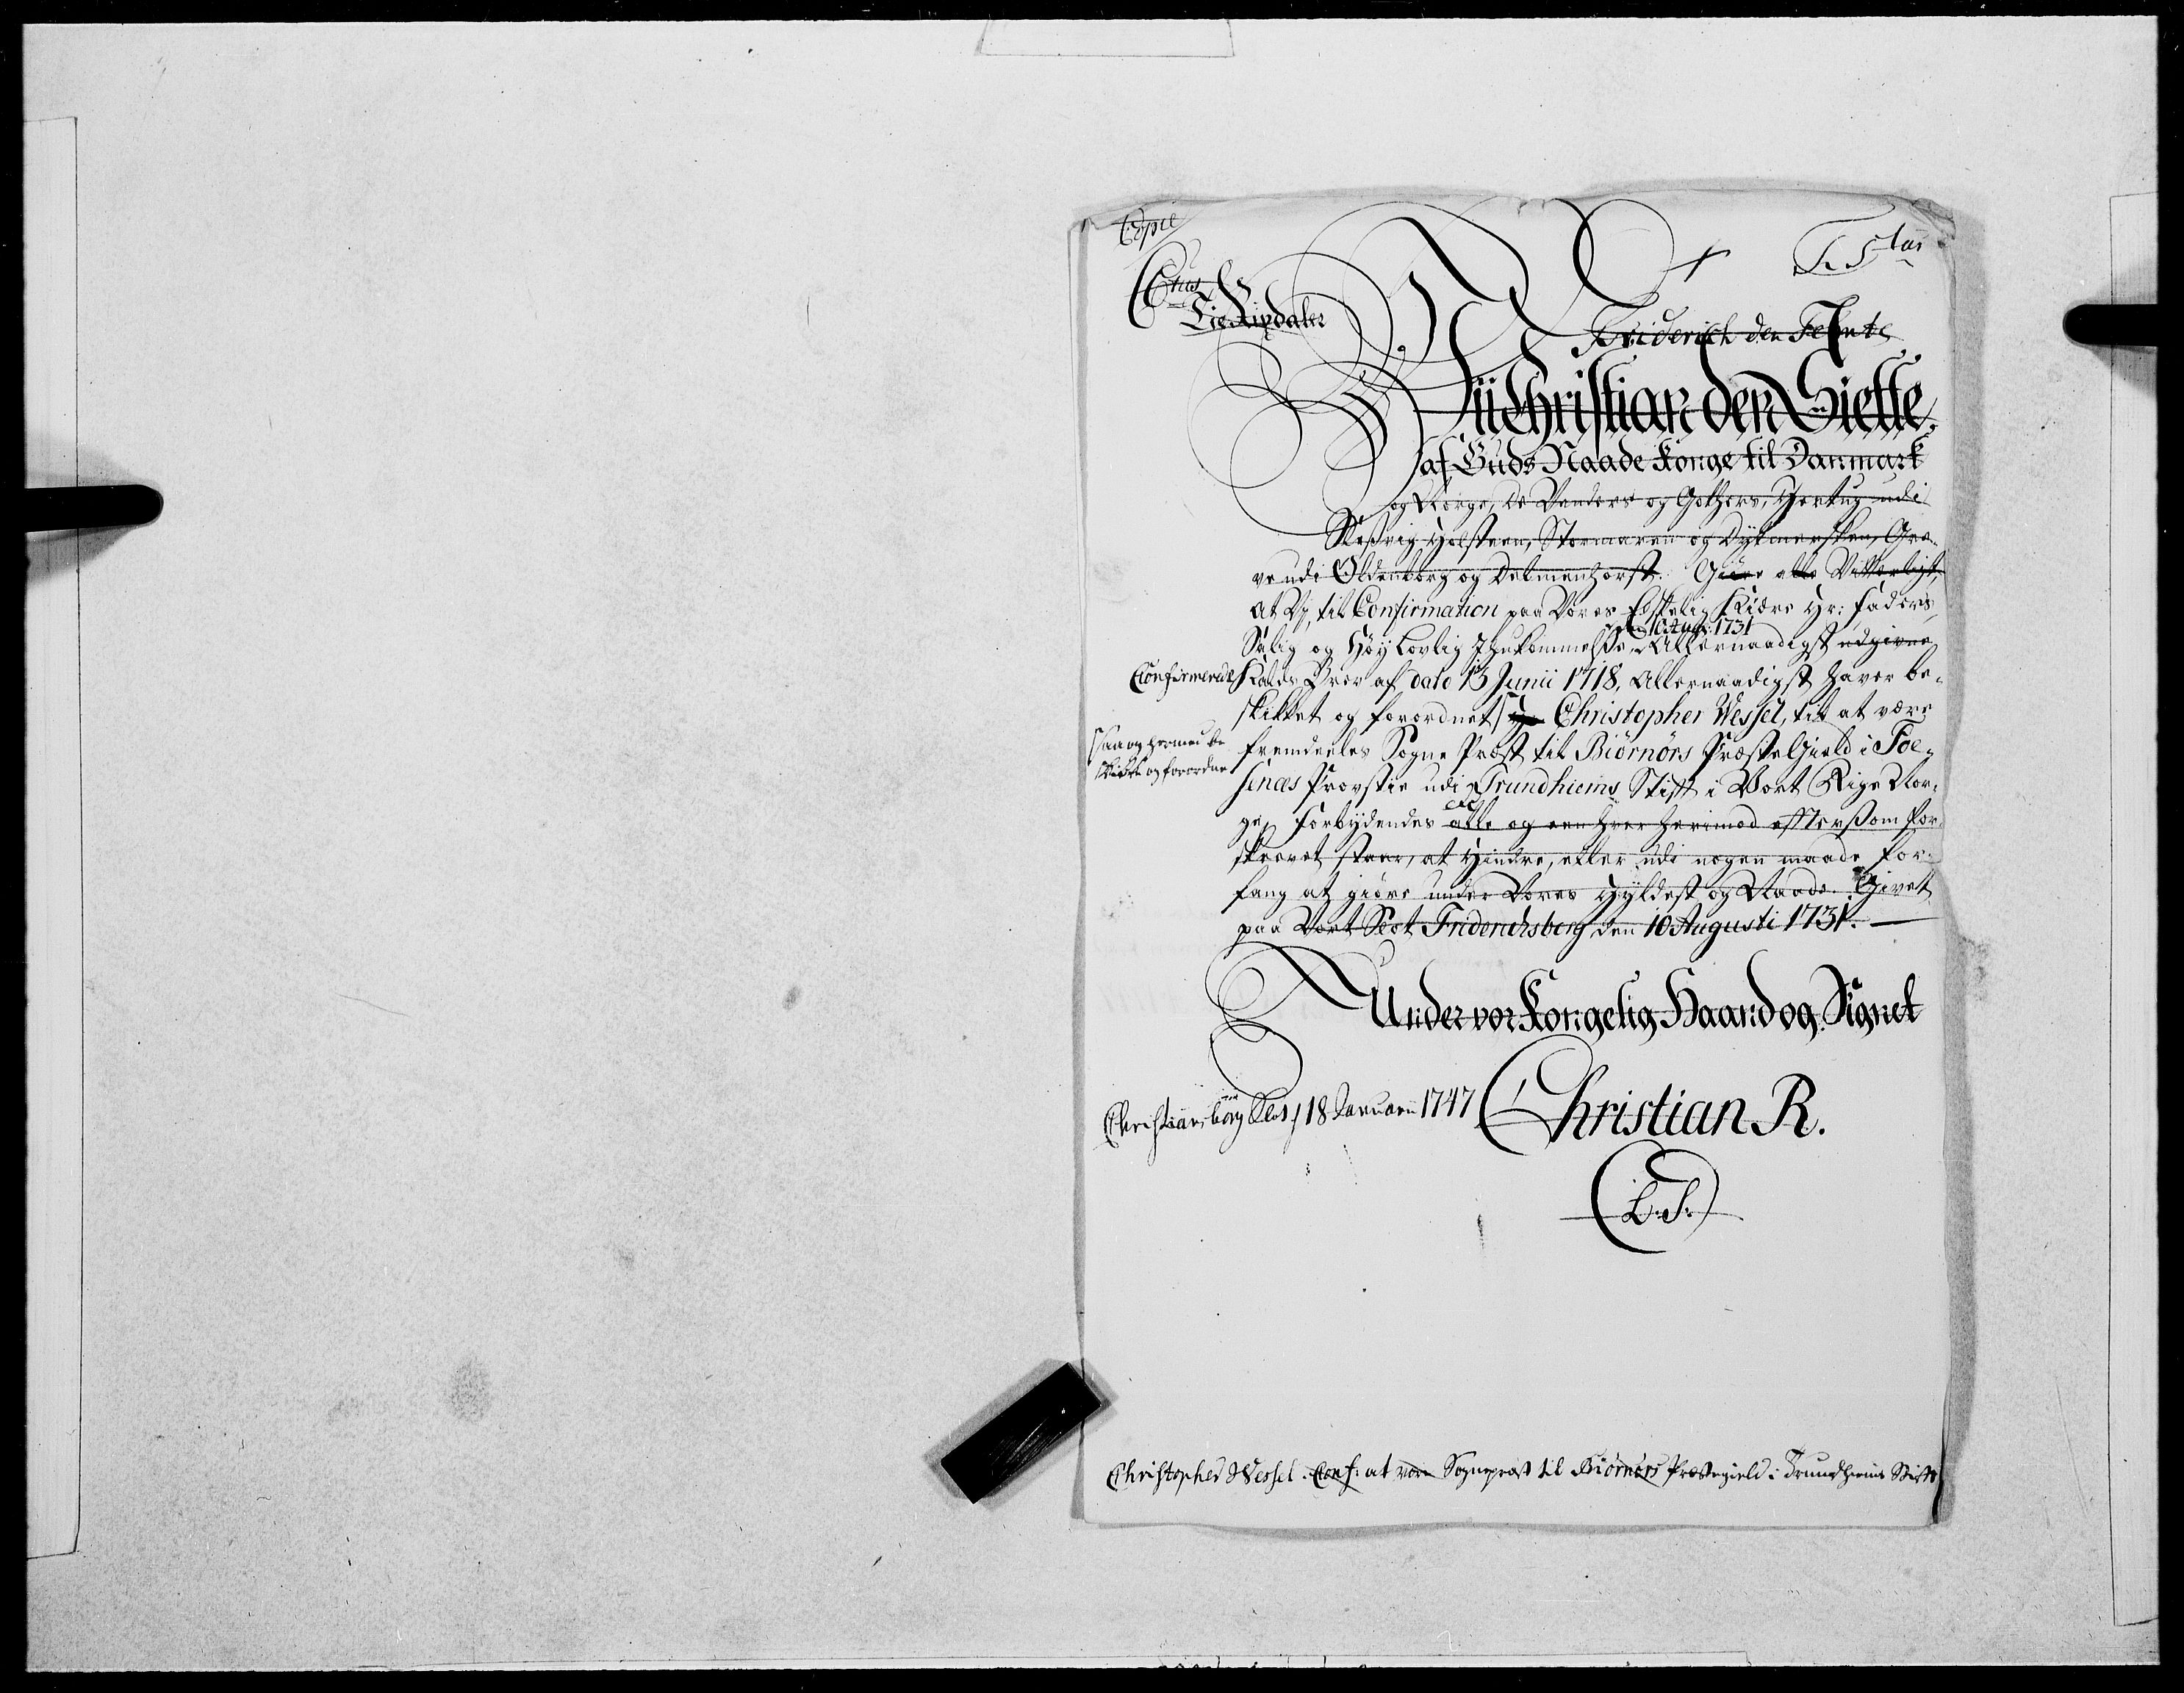 Copie
Tie Rixdaler
Friderich den Femte
Vii Christian den Siette,
af Guds Naade Konge til Danmark
og Norge, de Venders og Gothers, Hertug udi
Slesvig Holsteen, Stormaren og Dytmersken, Gre-
ve udi Oldenborg og Delmenhorst. Giøre alle Vitterligt,
At Vi, til Confirmation paa Vores Elskelig Kiære Hr: Faders
10 Aug: 1731
Salig og Høylovlig Ihukommelse, Allernaadigst udgivne
Confirmerede Kalds Brev af dato 13 Junii 1718, Allernaadigst haver be-
skikket og forordnet Christopher Wessel, til at være
saa og hermed be
skikke og forordne
fremdeeles Sogne Præst til Biørnørs Præste Gield i Foe-
snæs Provstie udi Trundhiems Stift i Vort Rige Nor-
ge, Forbydendes alle og een hver herimod efftersom for-
skrevet staar, at Hindre, eller udi nogen maade For-
fang at giøre under Vores Hyldest og Naade. Givet
paa Vort Slot Friderichsberg den 10 Augusti 1731.
Under vor Kongelig Haand og Signet
Christiansborg Slot 18 Januarii 1747
Christian R.
L.S.
Christopher Wessel Conf: at være Sognepræst til Biørnørs Præstegield i Trundhiems Stift